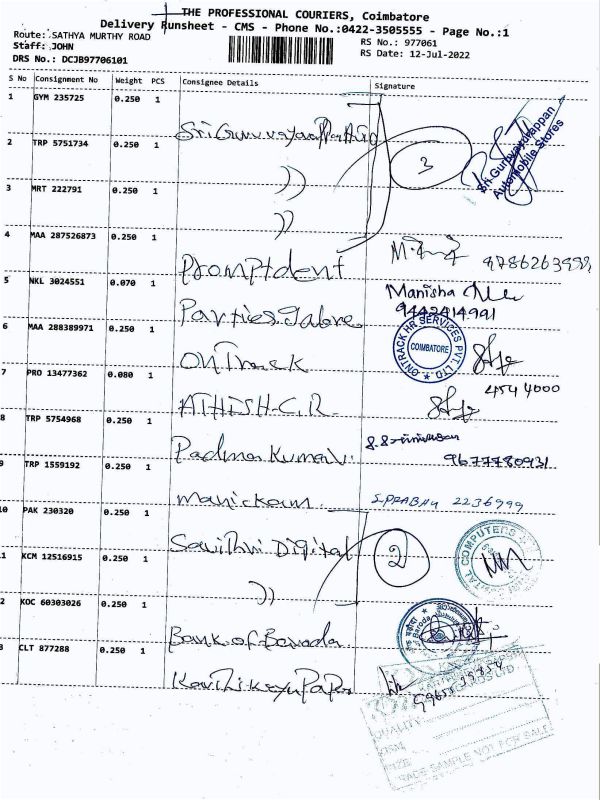 THE PROFESSIONAL COURIERS, Coimbatore
Delivery Runsheet - CMS - Phone No.:0422-3505555 - Page No.:1
Route: SATHYA MURTHY ROAD
Staff: JOHN
DRS No.: DCJB97706101
RS No.: 977061
RS Date: 12-Jul-2022
S No Consignment No Weight PCS Consignee Details Signature
1 GYM 235725 0.250 1
Sri Guruvayurappan Auto
2 TRP 5751734 0.250 1
))
3
Sri Guruvayurappan
Automobile Stores
3 MRT 222791 0.250 1
))
4 MAA 287526873 0.250 1
Promptdent
5 NKL 3024551 0.070 1
Parties Manisha
9442414991
6 MAA 288389971 0.250 1
OnTrack
ONTRACK HR SERVICES PVT. LTD.
COIMBATORE
7 PRO 13477362 0.080 1
ATHISH-C.R. 454 4000
8 TRP 5754968 0.250 1
Padma Kumar
9677780931
9 TRP 1559192 0.250 1
Manickam S.PRABHU 2236999
10 PAK 230320 0.250 1
Savithri Digital 2
COMPUTERS
11 KCM 12516915 0.250 1
))
12 KOC 60303026 0.250 1
Bank of Baroda
13 CLT 877288 0.250 1
QUALITY
TRADE SAMPLE NOT FOR SALE